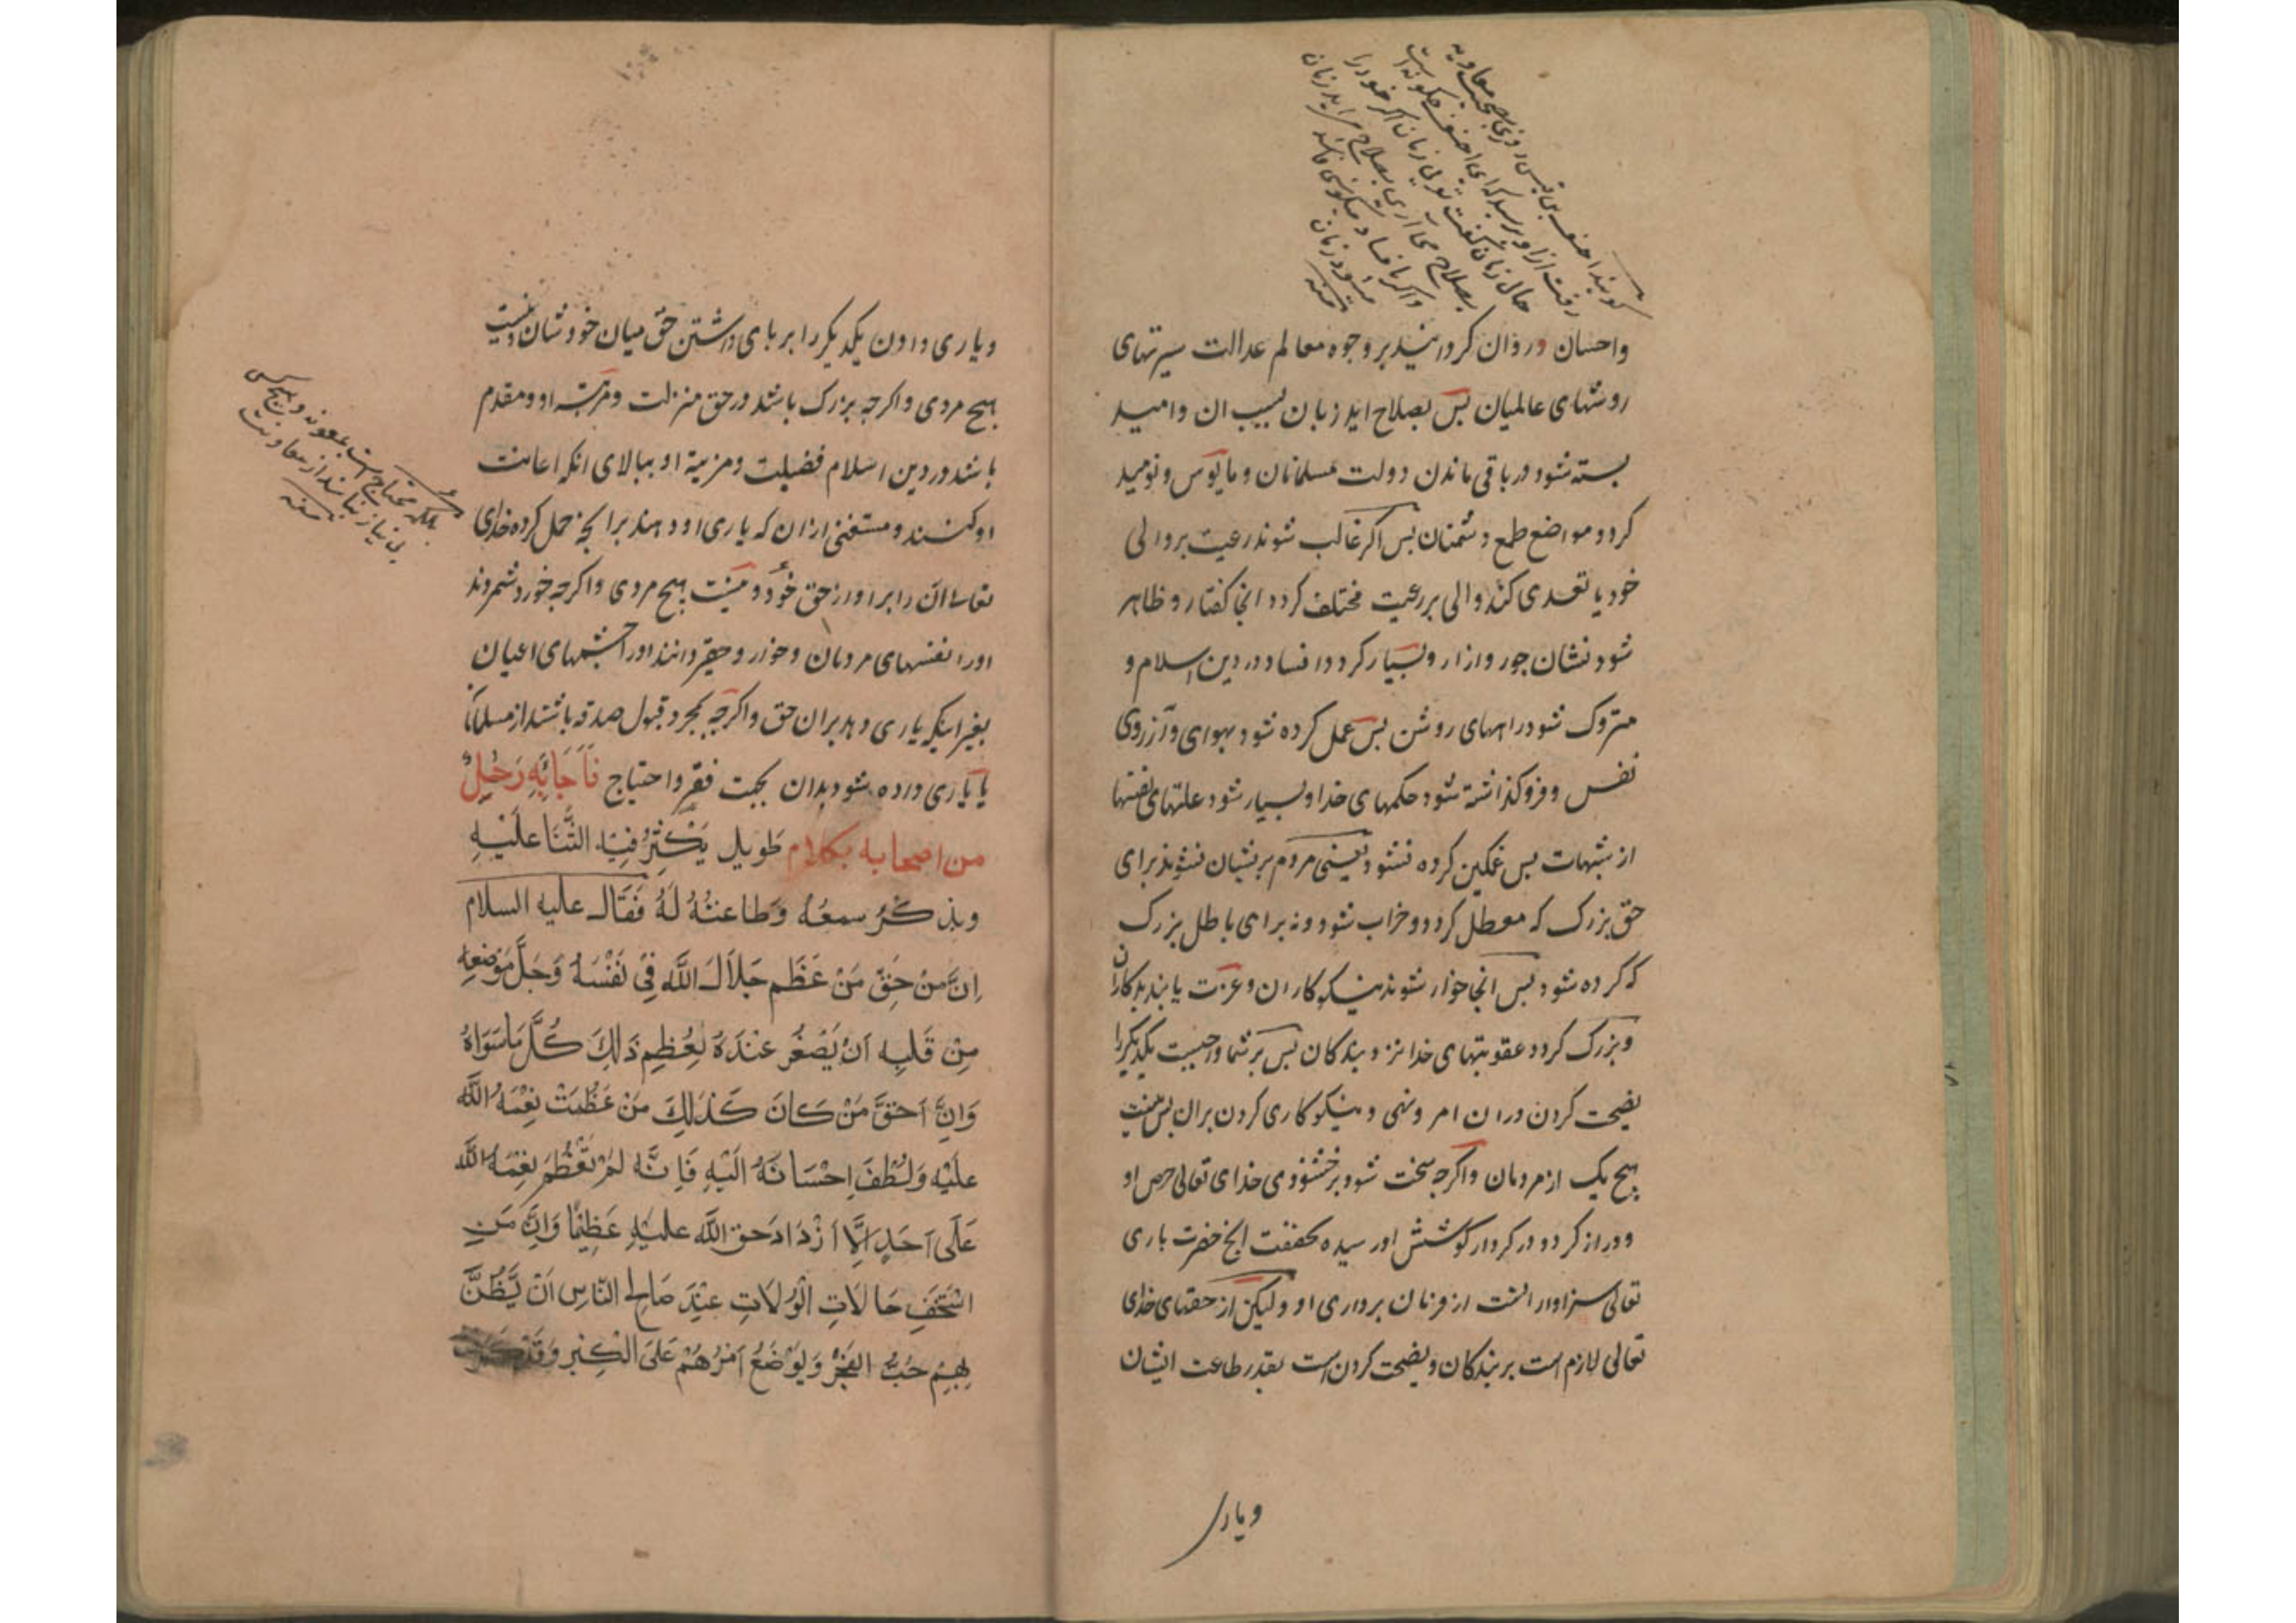 گویند احنف بن قیس روزی بصحبت معاویه
رفت از او پرسید که ای احنف چگونه است
حال زمان گفت تویی زمان اگر خود را
بصلاح می آری بصلاح می آید زمان
و اگر با فساد میکوشی فاسد
میشود زمان
منه
واحسان در روان کردانیند بر وجوه معالم عدالت سیرتهای
روشهای عالمیان بس بصلاح اید زمان بسبب ان وامید
بسته شود در باقی ماندن دولت مسلمانان و مایوس و نومید
کردد مواضع طمع دشمنان بس اکر غالب شوند رعیت بر والی
خود یا تعدی کند والی بر رعیت مختلف کردد انجا کفتار و ظاهر
شود نشان جور وازار و بسیار کردد افساد در دین اسلام و
متروک شود راههای روشن بس عمل کرده شود بهوای وآرزوی
نفس و فرو کذاشته شود حکمهای خدا و بسیار شود علتهای نفسها
از شبهات بس غمکین کرده نشود یعنی مردم بریشان نشوند برای
حق بزرک که معطل کردد و خراب شود و نه برای باطل بزرک
که کرده شود بس انجا خوار شوند نیکوکاران و عزت یابند بدکاران
و بزرک کردد عقوبتهای خدا نزد بندکان بس بر شما واجبست یکدیکر را
نصیحت کردن در ان امر و نهی و نیکوکاری کردن بران بس نیست
هیچ یک از مردمان و اکرچه سخت شود بر خشنودی خدای تعالی حرص او
و دراز کردد در کردار کوشش او رسیده بحقیقت انچ حضرت باری
تعالی سزاوار انست از فرمان برداری او و لیکن از حقهای خدای
تعالی لازم است بر بندکان و نصیحت کردن است بقدر طاعت ایشان
و یاری
و یاری دادن یکدیکر را بر بای داشتن حق میان خودشان و نیست
هیچ مردی و اکرچه بزرک باشد در حق منزلت و مرتبه او و مقدم
باشد در دین اسلام فضیلت و مزیة او ببالای انکه اعانت
او کنند و مستغنی ازان که یاری او دهند بر انچه حمل کرده خدای
تعالی ان را بر او از حق خود و نیست هیچ مردی و اکرچه خورد شمردند
اورا نفسهای مردمان و خوار و حقیر دانند اورا چشمهای اعیان
بغیر اینکه یاری دهد بران حق و اکرچه بمجرد قبول صدقه باشد از مسلمانان
یا یاری داده شود بدان بجهت فقر و احتیاج فَاَجَابَهُ رَجُلٌ
من اصحابه بکلام طویل یَکْثُرُ فِیهِ الثَّنَا عَلَیْهِ
ویذکُرُ سمعَهُ وَطاعتهُ لَهُ فَقَالَ علیه السلام
اِنَّ مِنْ حَقِّ مَنْ عَظُم جَلاَلَ اللَّهِ فِی نَفْسِهِ وَجَلَّ مَوْضِعُهُ
مِنْ قَلبِهِ اَنْ یَصْغُرَ عِنْدَهُ لِعُظمِ ذَلِکَ کُلُّ مَا سَوَاهُ
وَاِنَّ اَحَقَّ مَنْ کَانَ کَذَلِکَ مَنْ عَظُمَتْ نِعْمَةُ اللَّهِ
عَلَیْهِ وَلَطُفَ اِحْسَانُهُ اِلَیْهِ فَاِنَّهُ لَمْ تَعْظُمْ نِعْمَةُ اللَّهِ
عَلَی اَحَدٍ اِلَّا اَزْدَادَ حق اللَّه علیْهِ عَظِیْمًا وَاِنَّ مَنِ
اسْتَخَفِّ حَالاَتِ الْوُلاَتِ عِنْدَ صَالِحِ النَّاسِ اَنْ یَّظُنَّ
بِهِمْ حُبُّ الفَخْرِ وَیُوْضَعُ اَمْرُهُمْ عَلَی الْکِبْرِ وَقَدْ کَرِهْتُ
بلکه محتاج است بمعونه و هیچ کس
بی نیاز نباشد از معاونت
منه